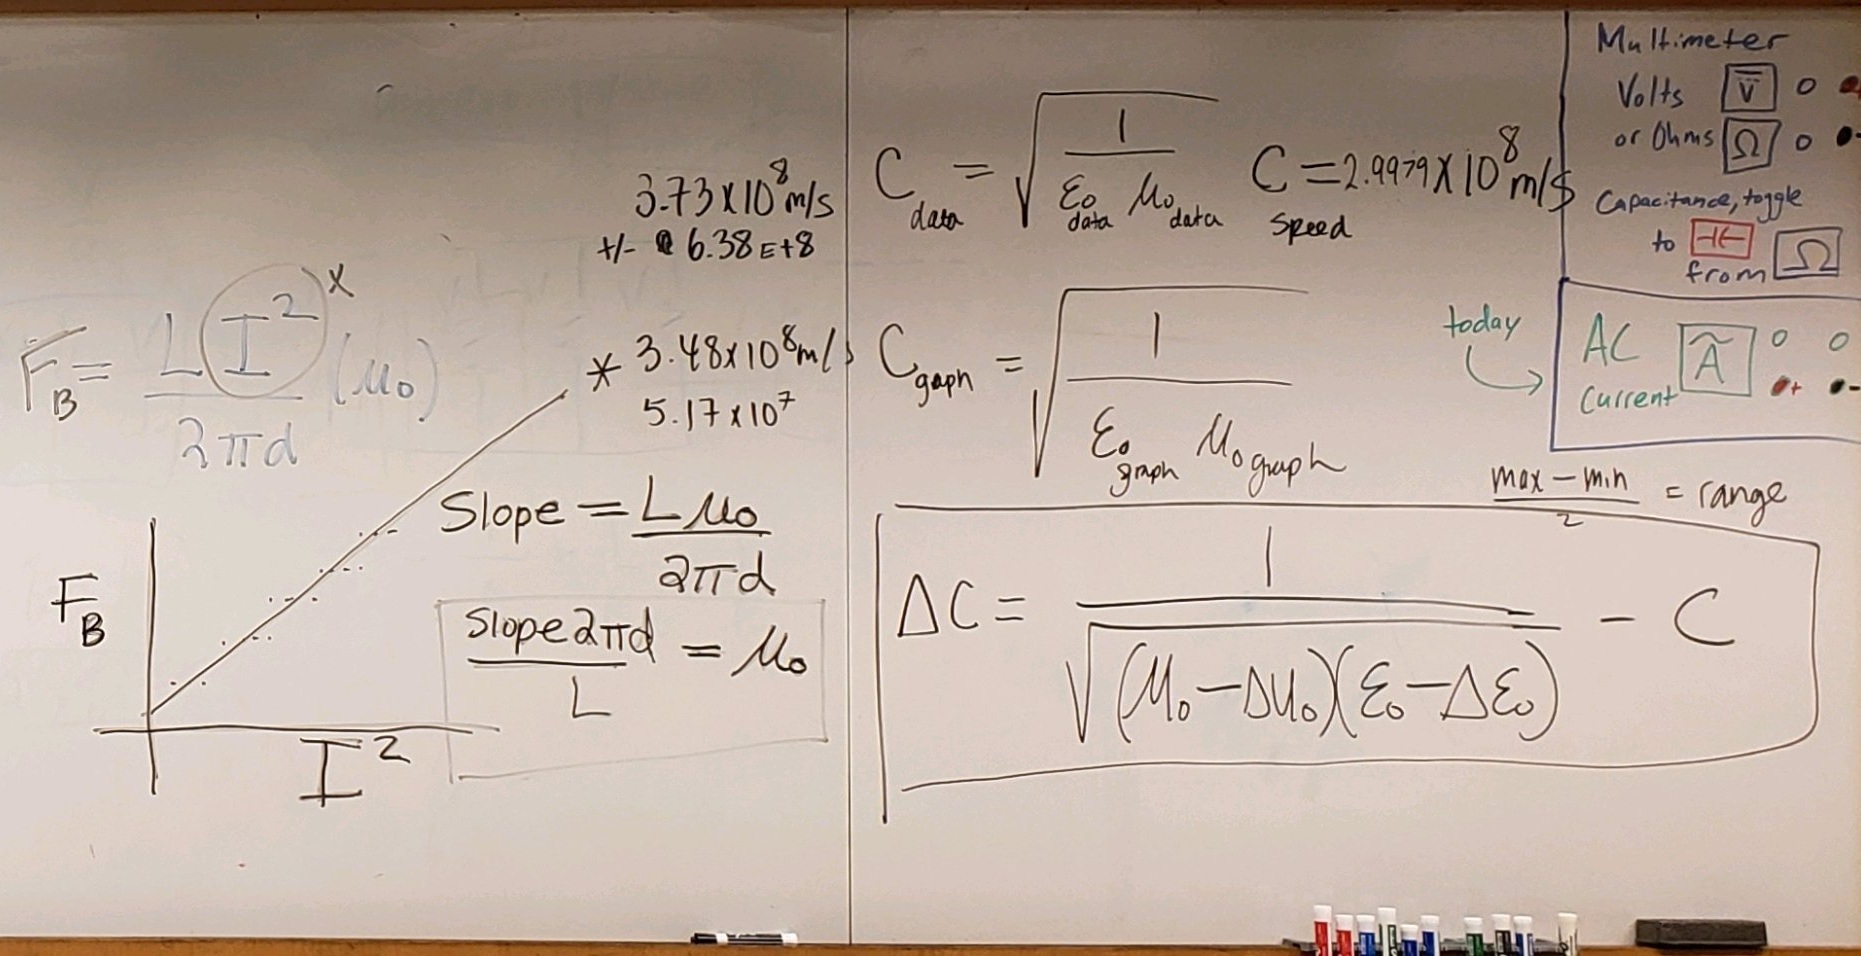 3.73x10⁸m/s
+/- 6.38E+8
F_B = L I² / 2πd (μ₀)
x
* 3.48x10⁸m/s
5.17x10⁷
Slope = Lμ₀ / 2πd
Slope2πd / L = μ₀
F_B
I²
C_data = √(1 / ε₀data μ₀data)
C speed = 2.9979X10⁸m/s
C_graph = √(1 / ε₀graph μ₀graph)
max - min / 2 = range
ΔC = 1 / √((μ₀-Δμ₀)(ε₀-Δε₀)) - C
Multimeter
Volts V
or Ohms Ω
Capacitance, toggle
to
from Ω
today
AC Ã
Current + -